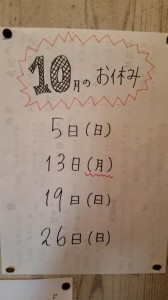 10月のお休み
5日(日)
13日(月)
19日(日)
26日(日)